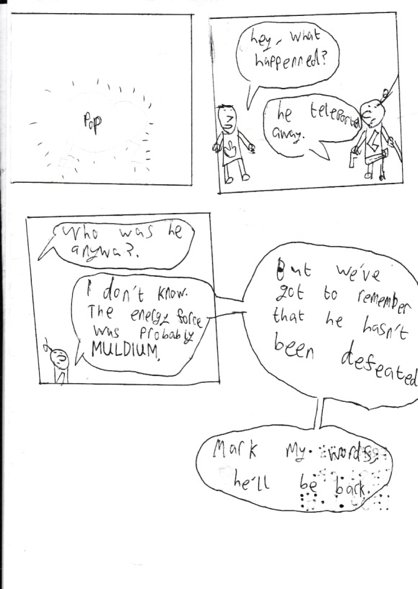 Pop
hey, what
happenned?
he teleported
away.
Who was he
anywa?.
I don't know.
The energy force
was probably
MULDIUM.
But we've
got to remember
that he hasn't
been defeated
Mark my words,
he'll be back.